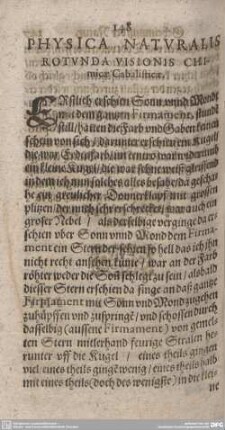 148
PHYSICA NATVRALIS
ROTVNDA VISIONIS CHI
micæ Cabalisticæ.
ERstlich erschien Sonn vnnd Mondt
mit dem gantzen Firmament, stundt
still / hatten die Farb vnd Gaben
schein von sich / darunter erschien ein Kugel
die war Erdtfarb / im centro war
ein kleine Kugel / die war
in dem ich nun solches alles besahe / da geschah
ein greulicher Donnerklapff mit grossen
plitzen / der mich sehr erschrecket / war auch ein
grosser Nebel / als derselbige vergienge da er-
schien vber Sonn vnnd Mond dem Firma-
ment ein Stern der schein so hell das ich ihn
nicht recht ansehen künte / war an der Farb
röhter weder die Sonn / alsbald
diesser Stern erschien da finge an daß gantze
Firmament mit Sonn vnd Mond zugehen
zuhüpffen vnd zuspringē / vnd schossen durch
dasselbig (aussene Firmament) von gemel-
ten Stern mitlerhand feurige Stralen her-
runter vff die Kugel / eines theils gingen
viel eines theils gingē wenig / eines theils halb
mit eines theils (doch des wenigste) in die klei-
ne